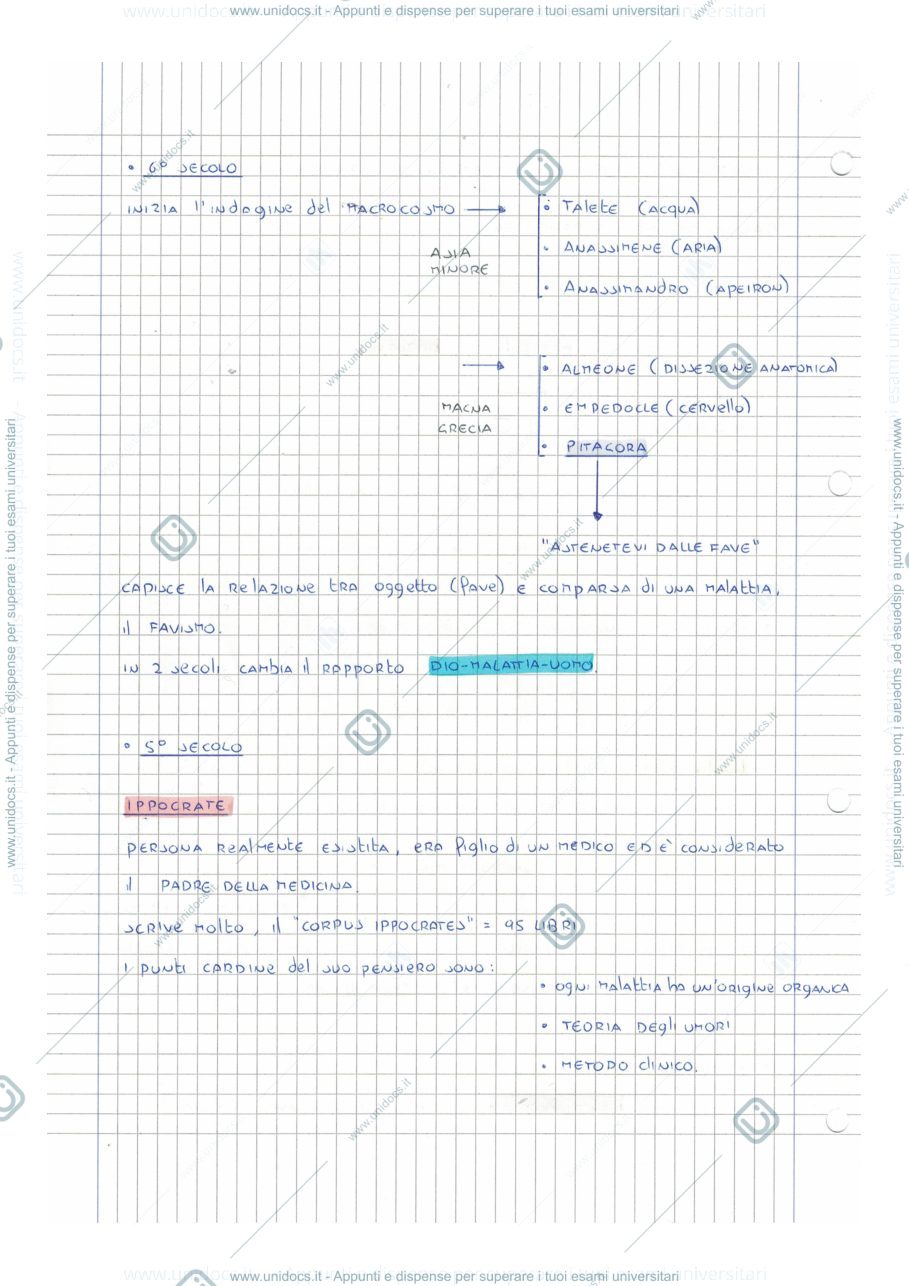 www.unidocs.it - Appunti e dispense per superare i tuoi esami universitari
• 6° SECOLO
INIZIA l'INdagINE del MACROCOSMO → • TALETE (ACQUA)
ASIA
MINORE
• ANASSIMENE (ARIA)
• ANASSIMANDRO (APEIRON)
→ • ALMEONE (DISSEZIONE ANATOMICA)
MAGNA
GRECIA
• EMPEDOCLE (CERVEllO)
• PITAGORA
"ASTENETEVI DALLE FAVE"
CAPISCE lA RELAZIONE TRA oggetto (fave) E COMPARSA di UNA MALATTIA,
il FAVISMO.
IN 2 secoli CAMBIA il RAPPORTO DIO-MALATTIA-UOMO.
• 5° SECOLO
IPPOCRATE
PERSONA REALMENTE ESISTITA, ERA figlio di UN MEDICO ED È CONSIDERATO
il PADRE DELLA MEDICINA.
SCRIVE MOLTO, il "CORPUS IPPOCRATES" = 95 LIBRI
I PUNTI CARDINE del SUO PENSIERO SONO:
• OGNI MALATTIA ha UN'ORIGINE ORGANICA
• TEORIA DEgli UMORI
• METODO cliNICO.
www.unidocs.it - Appunti e dispense per superare i tuoi esami universitari
www.unidocs.it - Appunti e dispense per superare i tuoi esami universitari
www.unidocs.it - Appunti e dispense per superare i tuoi esami universitari
www.unidocs.it
www.unidocs.it
www.unidocs.it
www.unidocs.it
www.unidocs.it
www.unidocs.it